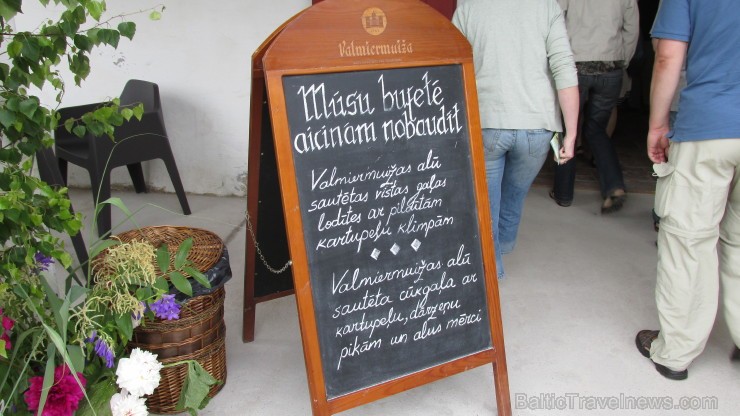 Valmiermuiža
Mūsu bufetē
aicinām nobaudīt
Valmiermuižas alū
sautētas vistas gaļas
lodītes ar pildītām
kartupeļu klimpām
Valmiermuižas alū
sautēta cūkgaļa ar
kartupeļu, dārzeņu
pikām un alus mērci
BalticTravelnews.com